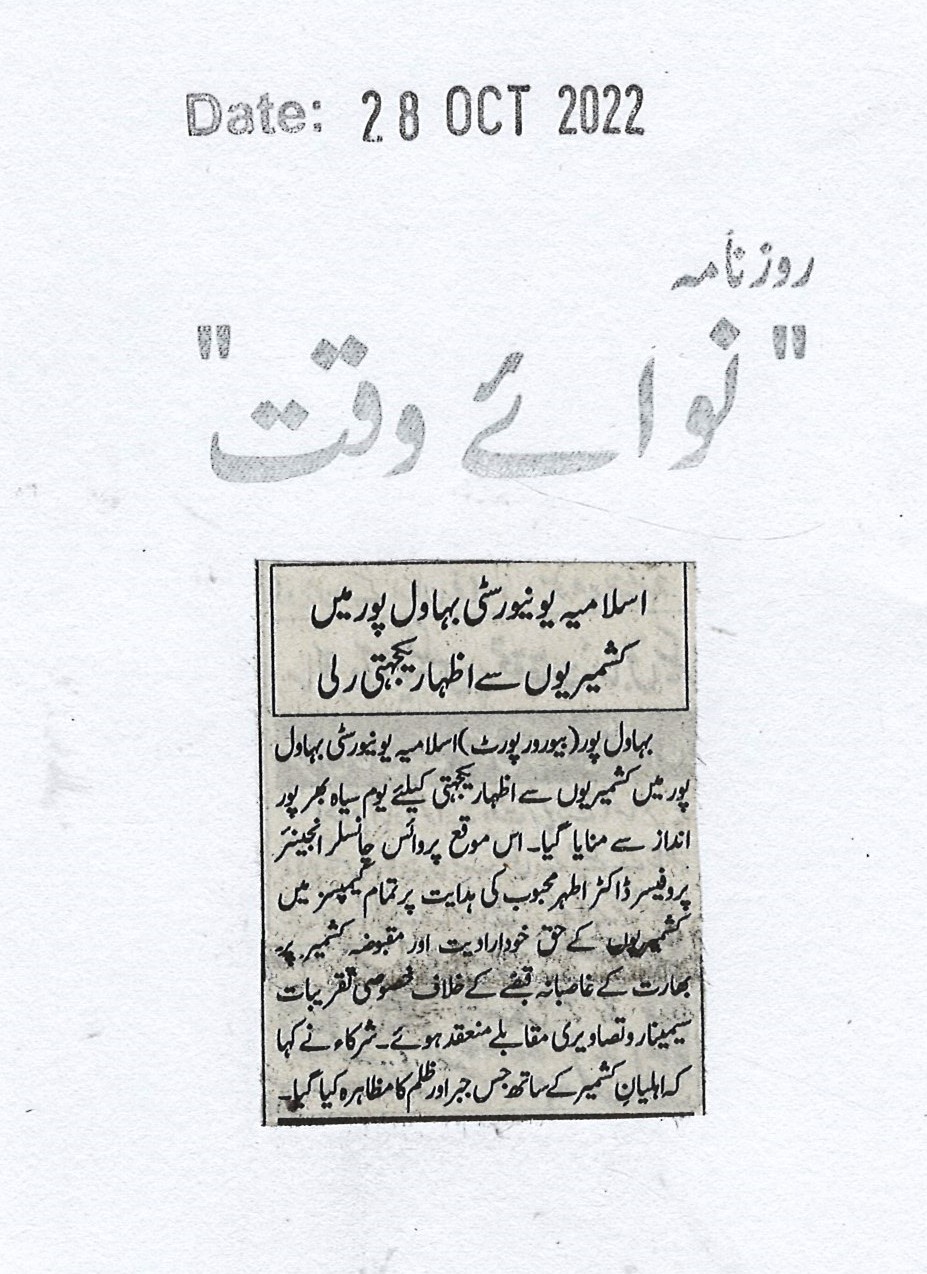 Date: 28 OCT 2022
روزنامہ
"نوائے وقت"
اسلامیہ یونیورسٹی بہاول پور میں
کشمیریوں سے اظہار یکجہتی ریلی
بہاول پور (بیورورپورٹ) اسلامیہ یونیورسٹی بہاول
پور میں کشمیریوں سے اظہار یکجہتی کیلئے یوم سیاہ بھر پور
انداز سے منایا گیا۔ اس موقع پر وائس چانسلر انجینئر
پروفیسر ڈاکٹر اطہر محبوب کی ہدایت پر تمام کیمپسز میں
کشمیریوں کے حق خودارادیت اور مقبوضہ کشمیر پر
بھارت کے غاصبانہ قبضے کے خلاف خصوصی تقریبات
سیمینار و تصاویری مقابلے منعقد ہوئے۔ شرکاء نے کہا
کہ اہلیانِ کشمیر کے ساتھ جس جبر اور ظلم کا مظاہرہ کیا گیا۔